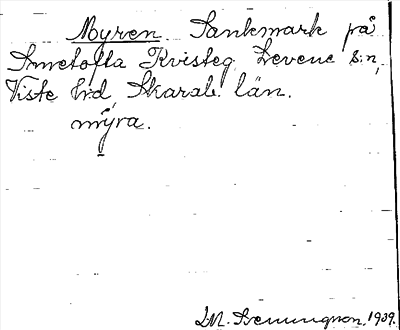 Myren. Sankmark på
Smetofta Kvisteg. Levene s:n,
Viste hd, Skarab. län.
myra.
M. Hemmingson. 1939.